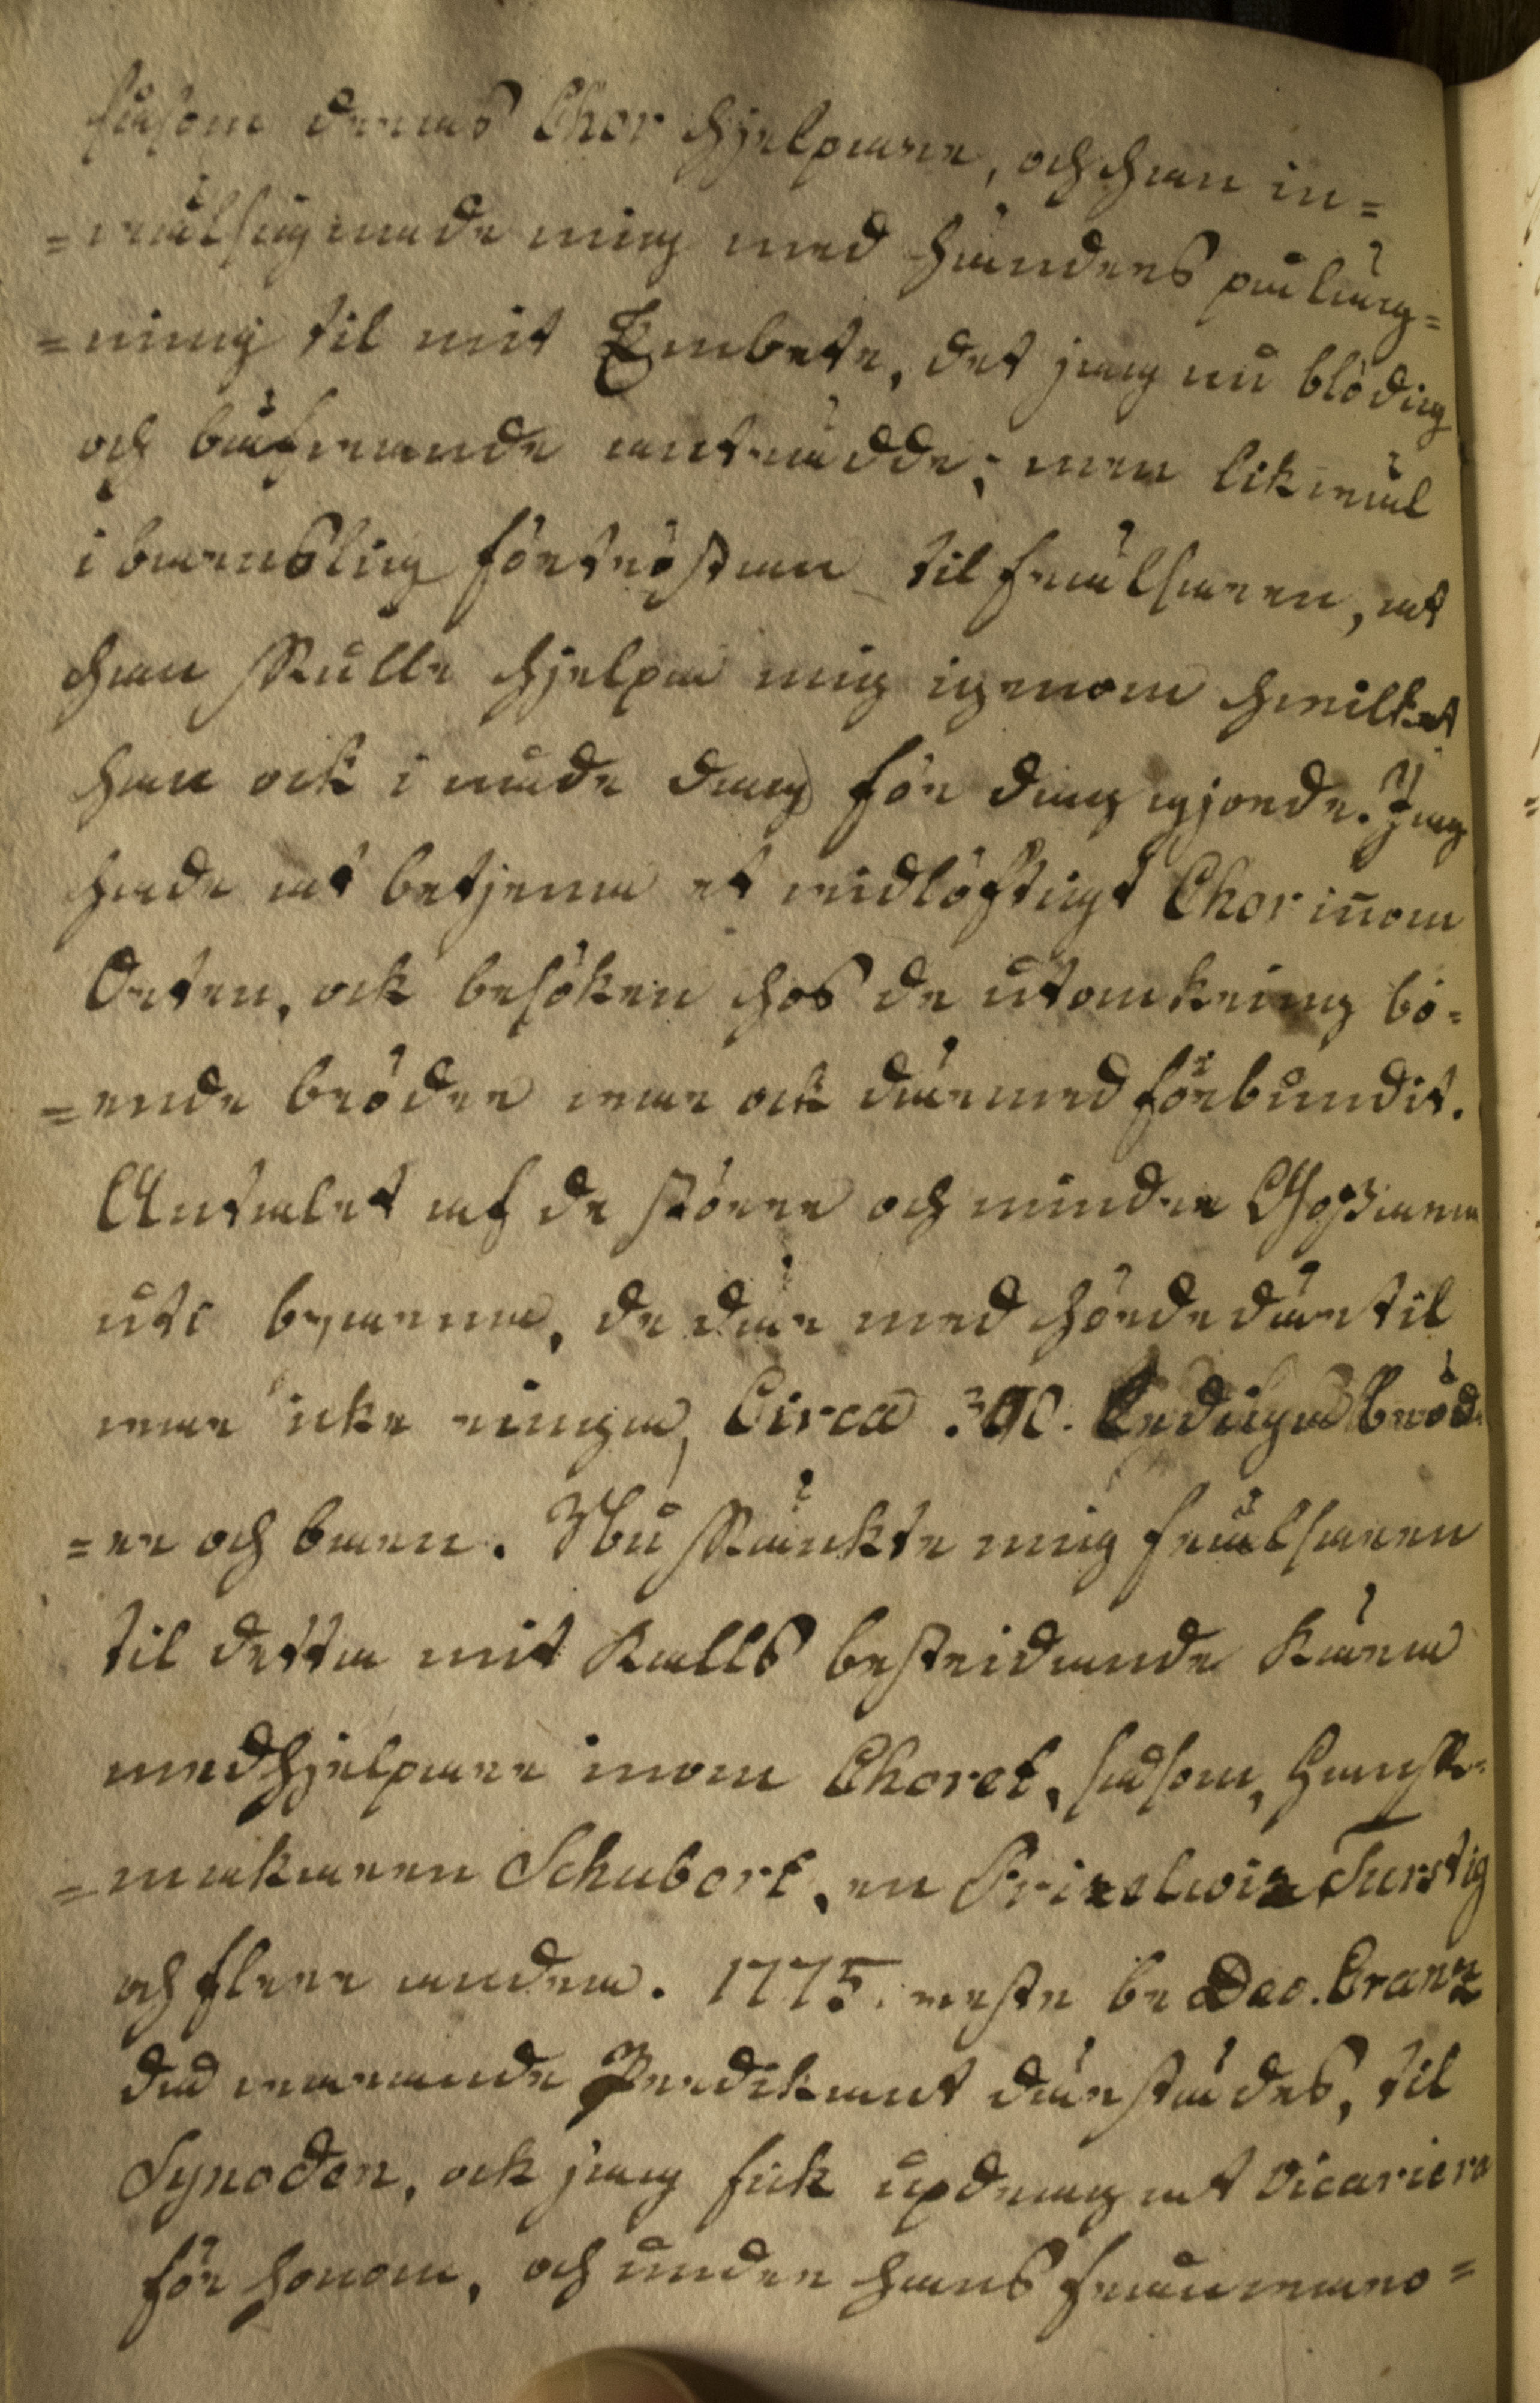 såsom deras Chor hjelpare, och han in=
=wälsignade mig med händers pålägg=
=ning til mit Embete, det jag nu blödig
och bäfwande anträdde; men likwäl
i barnslig förtröstan til frälsaren, at
han skulle hjelpa mig igenom hwilket
han ock i nåde dag för dag gjorde. Jag
hade at betjena et widlöftigt Chor inom
Orten, ock besöken hos de utomkring bo=
=ende bröder war ock därmed förbundit.
Antalet af de större och mindre Gossarna
uti byarna, de där med hörde därtil
war icke ringa, Circa 300. Lediga Bröd=
=er och barn. Nu skänkte mig frälsaren
til detta mit Kalls bestridande kära
medhjelpare inom Choret, såsom, Handsk=
=makaren Schubert, en Fürstig
och flere andra. 1775. reste br Dav. Cranz
då warande Predikant därstädes, til
Synoden, ock jag fick updrag at Vicariera
för honom, och under hans frånwaro=